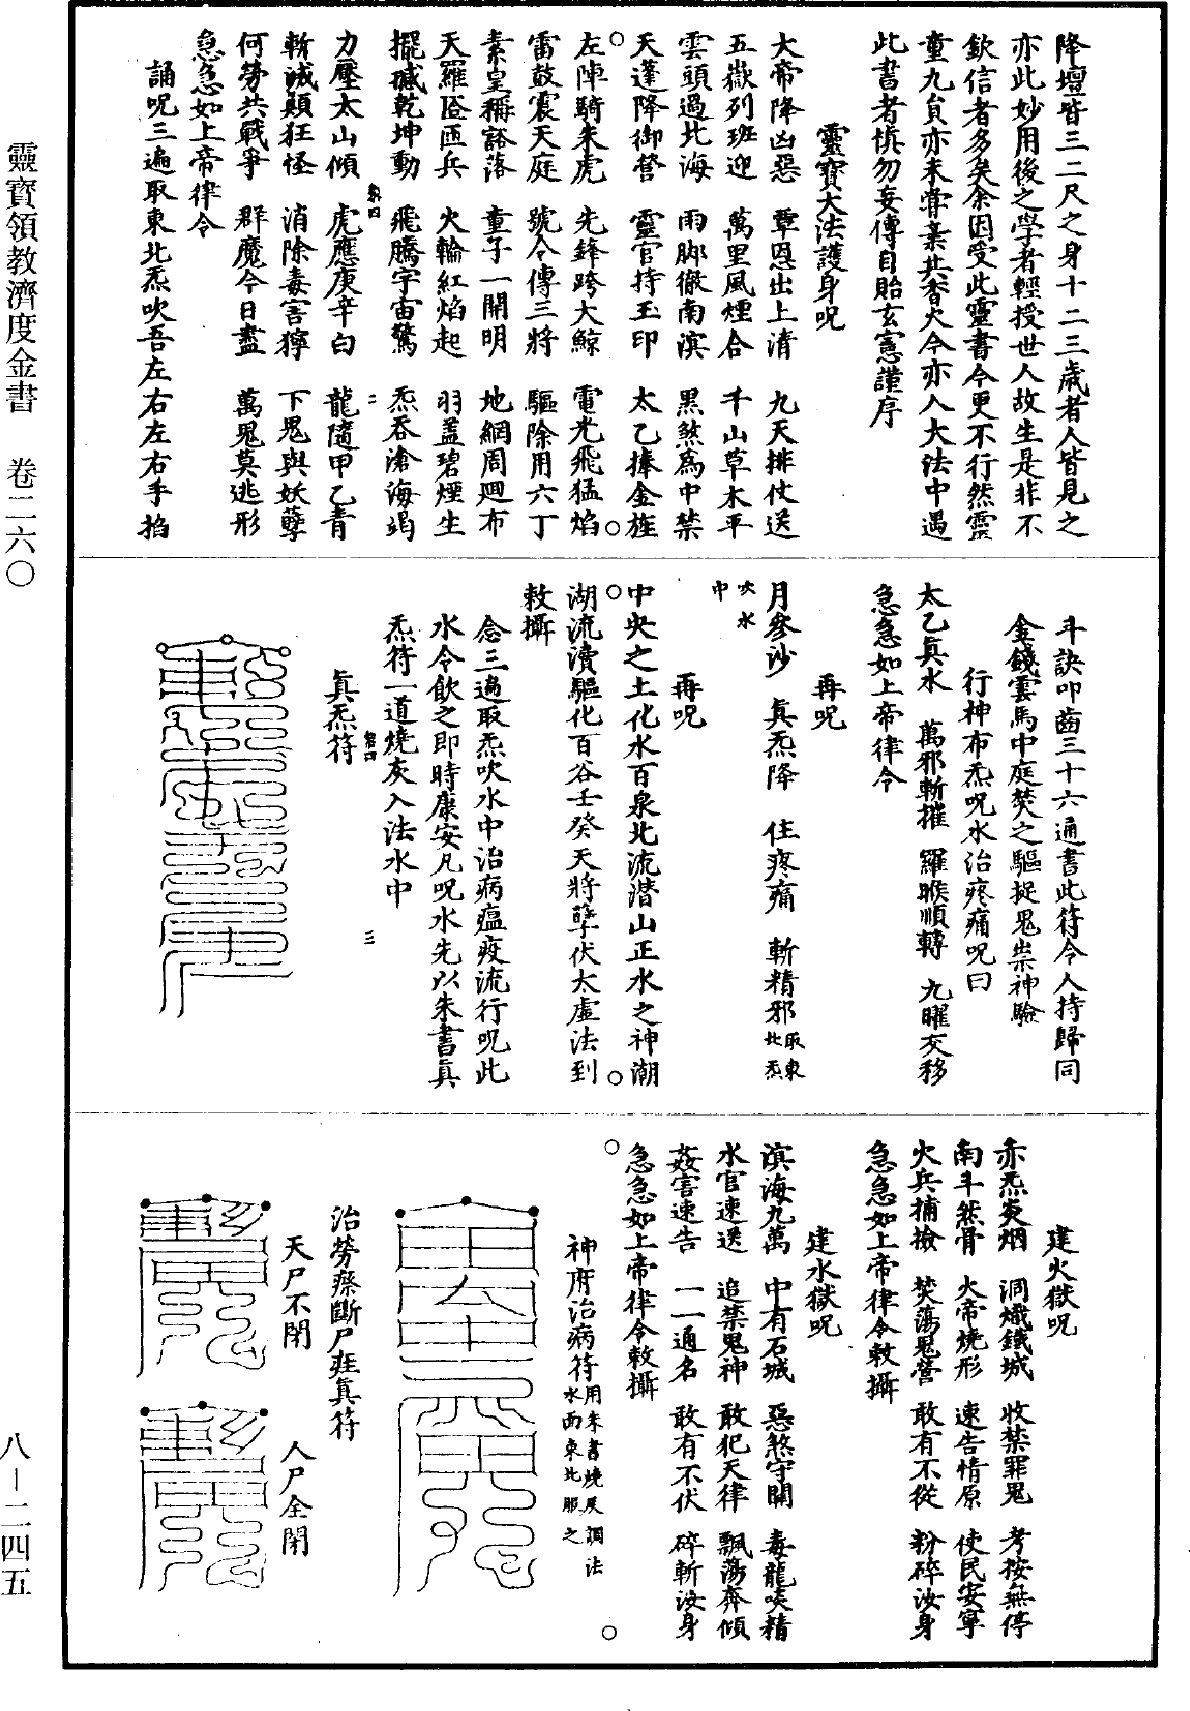 降壇皆三二尺之身十二三歲者人皆見之
亦此妙用後之學者輕授世人故生是非不
欽信者多矣余因受此靈書今更不行然靈
童九負亦未嘗棄其香火今亦入大法中遇
此書者慎勿妄傳自貽玄憲謹序
靈寶大法護身呪
大帝降凶惡 覃恩出上清 九天排仗送
五嶽列班迎 萬里風煙合 千山草木平
雲頭過北海 雨脚徹南溟 黑煞為中禁
天蓬降御營 靈官持玉印 太乙捧金旌
左陣騎朱虎 先鋒跨大鯨 電光飛猛焰
雷鼓震天庭 號令傳三將 驅除用六丁
素皇稱豁落 童子一開明 地網周迴布
天羅匼匝兵 火輪紅焰起 羽蓋碧煙生
擺撼乾坤動 飛騰宇宙驚 炁吞滄海竭
力壓太山傾 虎應庚辛白 龍隨甲乙青
斬滅顛狂怪 消除毒害獰 下鬼與妖孽
何勞共戰爭 群魔今日盡 萬鬼莫逃形
急急如上帝律令
誦呪三遍取東北炁吹吾左右左右手掐
斗訣叩齒三十六通書此符令人持歸同
金錢雲馬中庭焚之驅捉鬼祟神驗
行神布炁呪水治疼痛呪曰
太乙真水 萬邪斬摧 羅睺順轉 九曜灾移
急急如上帝律令
再呪
月參沙 真炁降 住疼痛 斬精邪取東北炁
吹水中
再呪
中央之土化水百泉北流潛山正水之神潮
湖流瀆驅化百谷壬癸天將孽伏大虛法到
敕攝
念三遍取炁吹水中治病瘟疫流行呪此
水令飲之即時康安凡呪水先以朱書真
炁符一道燒灰入法水中
真炁符
建火獄呪
赤炁炎烟 洞熾鐵城 收禁罪鬼 考按無停
南斗然骨 大帝燒形 速告情原 使民安寧
火兵捕撿 焚蕩鬼營 敢有不從 粉碎汝身
急急如上帝律令敕攝
建水獄呪
溟海九萬 中有石城 惡煞守關 毒龍啖精
水官速送 追禁鬼神 敢犯天律 飄蕩奔傾
姦害速告 一一通名 敢有不伏 碎斬汝身
急急如上帝律令敕攝
神府治病符用朱書燒灰調法水面東北服之
治勞瘵斷尸疰真符
天尸不閉 人尸全閉
靈寶領教濟度金書 卷二六〇
八—二四五